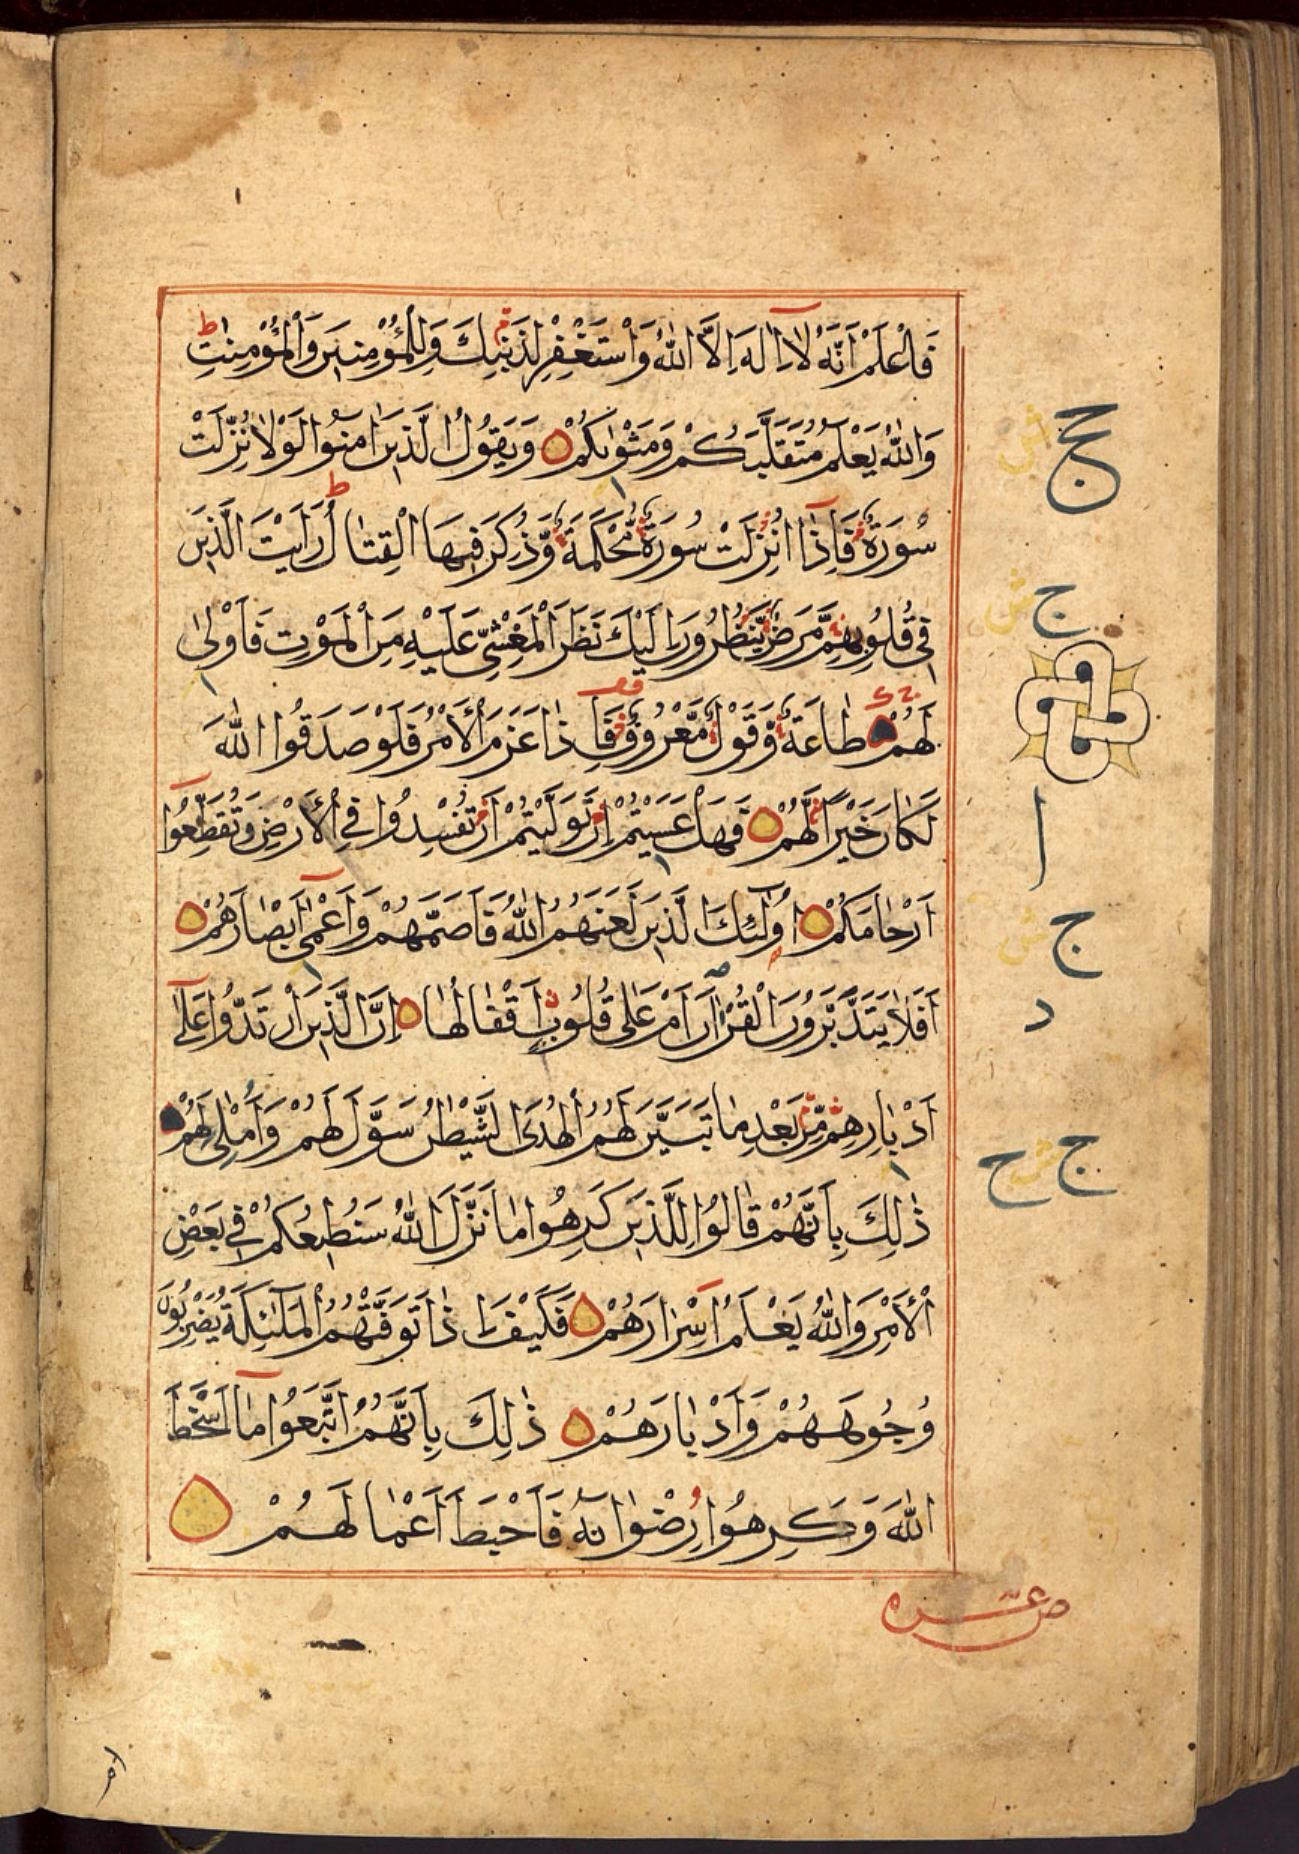 فَاعْلَمْ اَنَّهُ لَآ اِلٰهَ اِلَّا اللّٰهُ وَاسْتَغْفِرْ لِذَنْبِكَ وَلِلْمُؤْمِنِينَ وَالْمُؤْمِنٰتِ ط
وَاللّٰهُ يَعْلَمُ مُتَقَلَّبَكُمْ وَمَثْوٰىكُمْ وَيَقُولُ الَّذِينَ اٰمَنُوا لَوْلَا نُزِّلَتْ
سُورَةٌ فَاِذَآ اُنْزِلَتْ سُورَةٌ مُحْكَمَةٌ وَّذُكِرَ فِيهَا الْقِتَالُ ط رَاَيْتَ الَّذِينَ
فِي قُلُوبِهِمْ مَّرَضٌ يَّنْظُرُونَ اِلَيْكَ نَظَرَ الْمَغْشِيِّ عَلَيْهِ مِنَ الْمَوْتِ فَاَوْلٰى
لَهُمْ طَاعَةٌ وَّقَوْلٌ مَّعْرُوفٌ فَاِذَا عَزَمَ الْاَمْرُ فَلَوْ صَدَقُوا اللّٰهَ
لَكَانَ خَيْرًا لَّهُمْ فَهَلْ عَسَيْتُمْ اِنْ تَوَلَّيْتُمْ اَنْ تُفْسِدُوا فِي الْاَرْضِ وَتُقَطِّعُوا
اَرْحَامَكُمْ اُولٰٓئِكَ الَّذِينَ لَعَنَهُمُ اللّٰهُ فَاَصَمَّهُمْ وَاَعْمٰٓى اَبْصَارَهُمْ
اَفَلَا يَتَدَبَّرُونَ الْقُرْاٰنَ اَمْ عَلٰى قُلُوبٍ اَقْفَالُهَا اِنَّ الَّذِينَ ارْتَدُّوا عَلٰٓى
اَدْبَارِهِمْ مِّنْ بَعْدِ مَا تَبَيَّنَ لَهُمُ الْهُدَى الشَّيْطٰنُ سَوَّلَ لَهُمْ وَاَمْلٰى لَهُمْ
ذٰلِكَ بِاَنَّهُمْ قَالُوا لِلَّذِينَ كَرِهُوا مَا نَزَّلَ اللّٰهُ سَنُطِيعُكُمْ فِي بَعْضِ
الْاَمْرِ وَاللّٰهُ يَعْلَمُ اِسْرَارَهُمْ فَكَيْفَ اِذَا تَوَفَّتْهُمُ الْمَلٰٓئِكَةُ يَضْرِبُونَ
وُجُوهَهُمْ وَاَدْبَارَهُمْ ذٰلِكَ بِاَنَّهُمُ اتَّبَعُوا مَآ اَسْخَطَ
اللّٰهَ وَكَرِهُوا رِضْوَانَهُ فَاَحْبَطَ اَعْمَالَهُمْ
ج
ج
ا
ج
د
ج ح